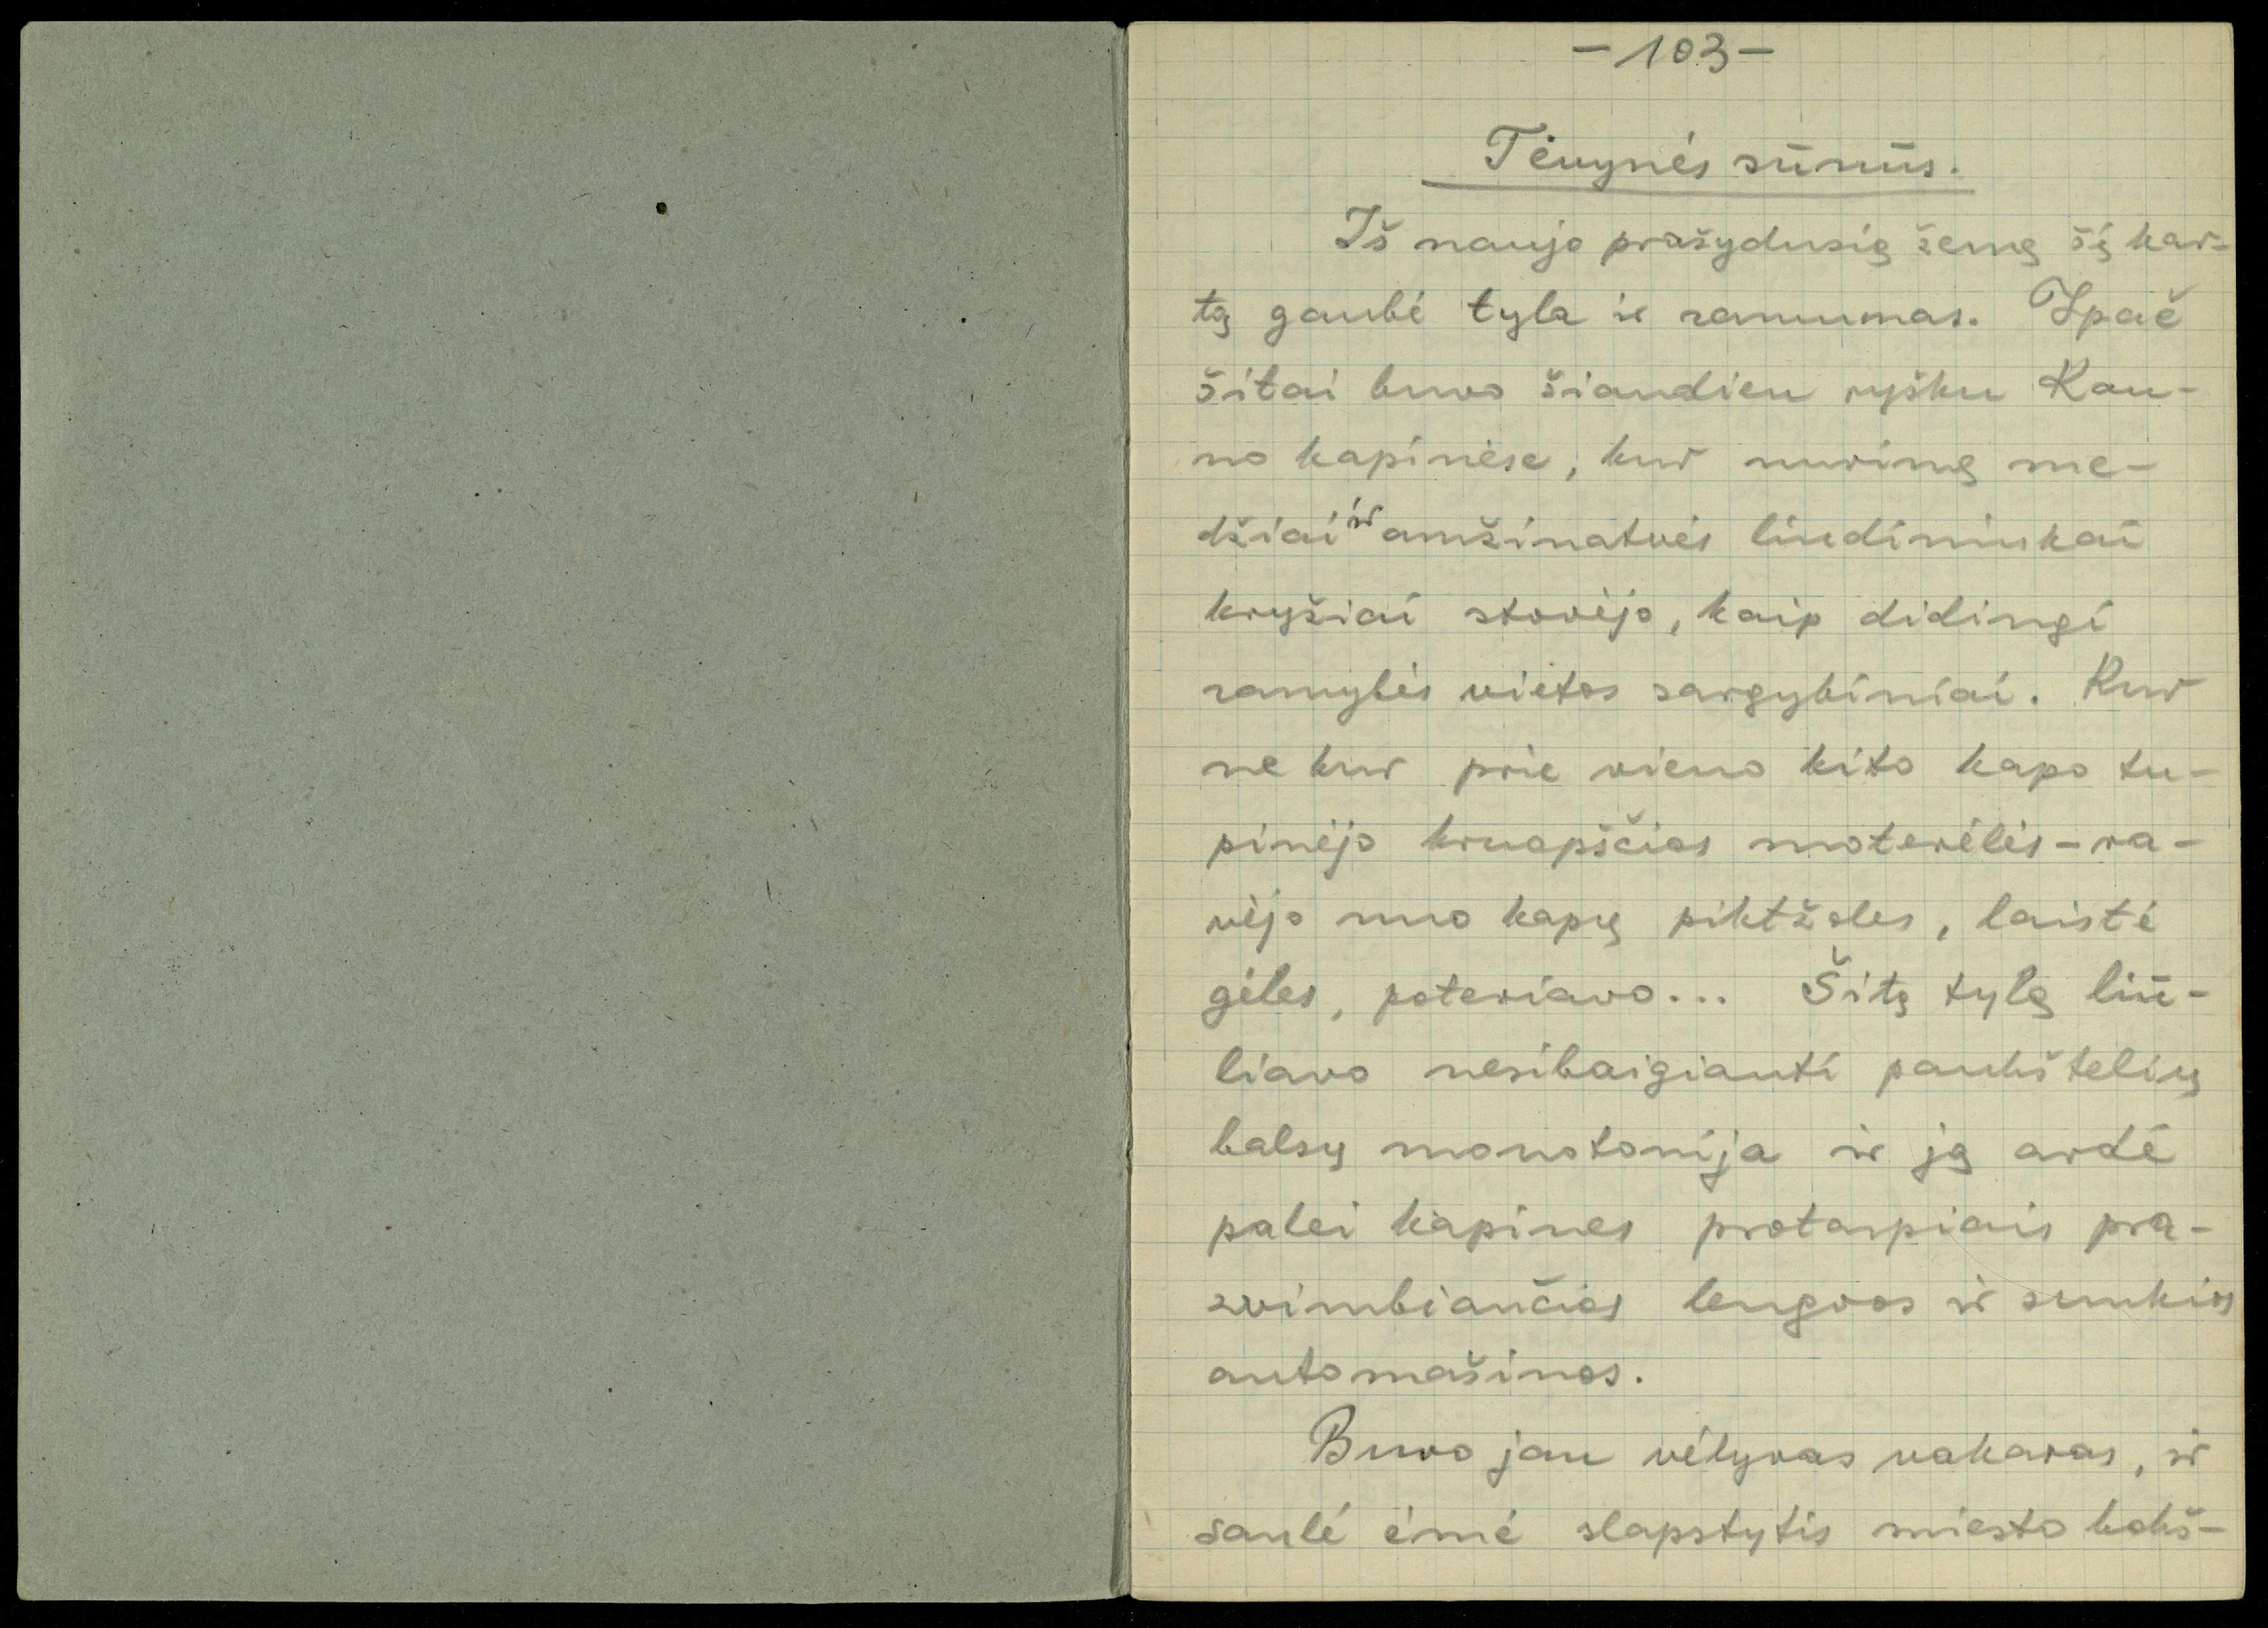 -103-
Tėvynės sūnūs.
Iš naujo pražydusią žemę šį kar-
tą gaubė tyla ir ramumas. Ypač
šitai buvo šiandien ryšku Kau-
no kapinėse, kur nurimę me-
džiai ir amžinatvės liudininkai
kryžiai stovėjo, kaip didingi
ramybės vietos sargybiniai. Kur
ne kur prie vieno kito kapo tu-
pinėjo kruopščios moterėlės - ra-
vėjo nuo kapų piktžoles, laistė
gėles, poteriavo... Šitą tylą liū-
liavo nesibaigianti paukštelių
balsų monotonija ir ją ardė
palei kapines protarpiais pra-
zvimbiančios lengvos ir sunkios
automašinos.
Buvo jau vėlyvas vakaras, ir
saulė ėmė slapstytis miesto bokš-